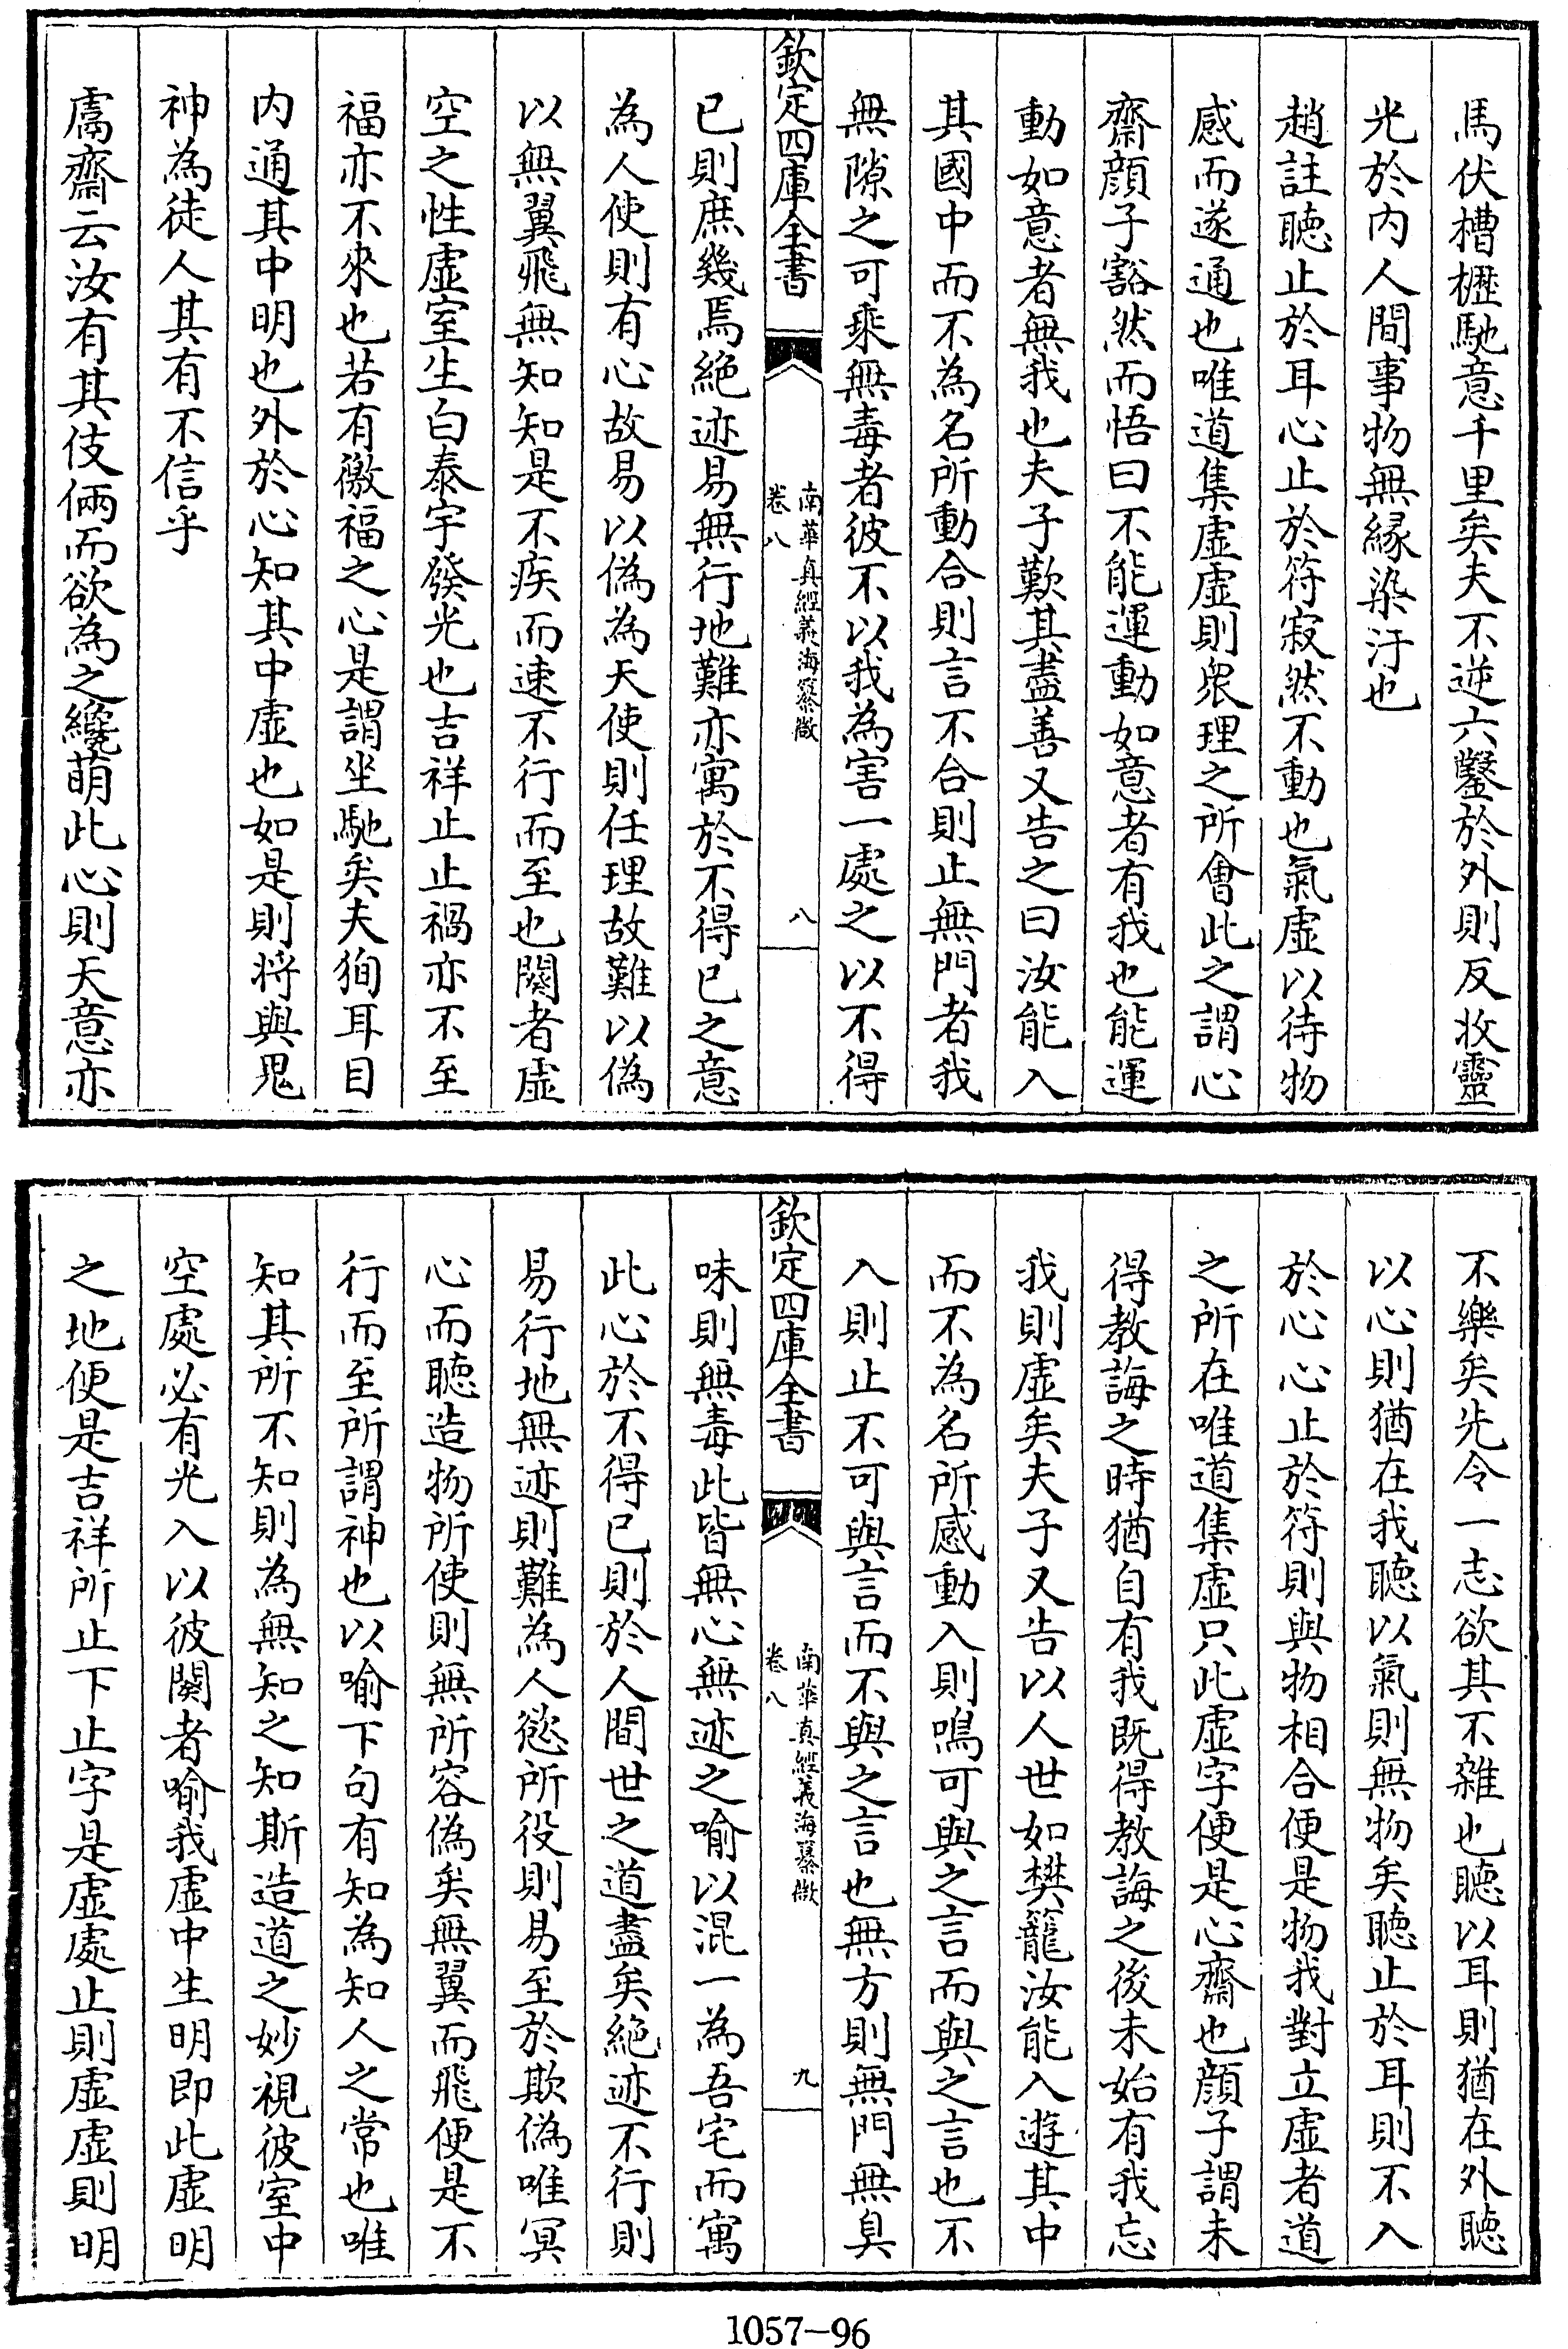 馬伏槽櫪馳意千里矣夫不逆六鑿於外則反收靈
光於内人間事物無縁染汙也
趙註聽止於耳心止於符寂然不動也氣虛以待物
感而遂通也唯道集虛虛則衆理之所㑹此之謂心
齋顔子豁然而悟曰不能運動如意者有我也能運
動如意者無我也夫子歎其盡善又告之曰汝能入
其國中而不為名所動合則言不合則止無門者我
無隙之可乘無毒者彼不以我為害一處之以不得
欽定四庫全書
南華真經義海纂微
卷八
八
已則庶幾焉絶迹易無行地難亦寓於不得已之意
為人使則有心故易以偽為天使則任理故難以偽
以無翼飛無知知是不疾而速不行而至也闋者虛
空之性虛室生白泰宇發光也吉祥止止禍亦不至
福亦不來也若有徼福之心是謂坐馳矣夫狥耳目
内通其中明也外於心知其中虛也如是則将與鬼
神為徒人其有不信乎
鬳齋云汝有其伎倆而欲為之纔萌此心則天意亦
不樂矣先令一志欲其不雜也聽以耳則猶在外聽
以心則猶在我聽以氣則無物矣聽止於耳則不入
於心心止於符則與物相合便是物我對立虛者道
之所在唯道集虛只此虛字便是心齋也顔子謂未
得教誨之時猶自有我既得教誨之後未始有我忘
我則虛矣夫子又告以人世如樊籠汝能入遊其中
而不為名所感動入則鳴可與之言而與之言也不
入則止不可與言而不與之言也無方則無門無臭
欽定四庫全書
南華真經義海纂微
卷八
九
味則無毒此皆無心無迹之喻以混一為吾宅而寓
此心於不得已則於人間世之道盡矣絶迹不行則
易行地無迹則難為人慾所役則易至於欺偽唯冥
心而聽造物所使則無所容偽矣無翼而飛便是不
行而至所謂神也以喻下句有知為知人之常也唯
知其所不知則為無知之知斯造道之妙視彼室中
空處必有光入以彼闋者喻我虛中生明即此虛明
之地便是吉祥所止下止字是虛處止則虛虛則明
1057-96